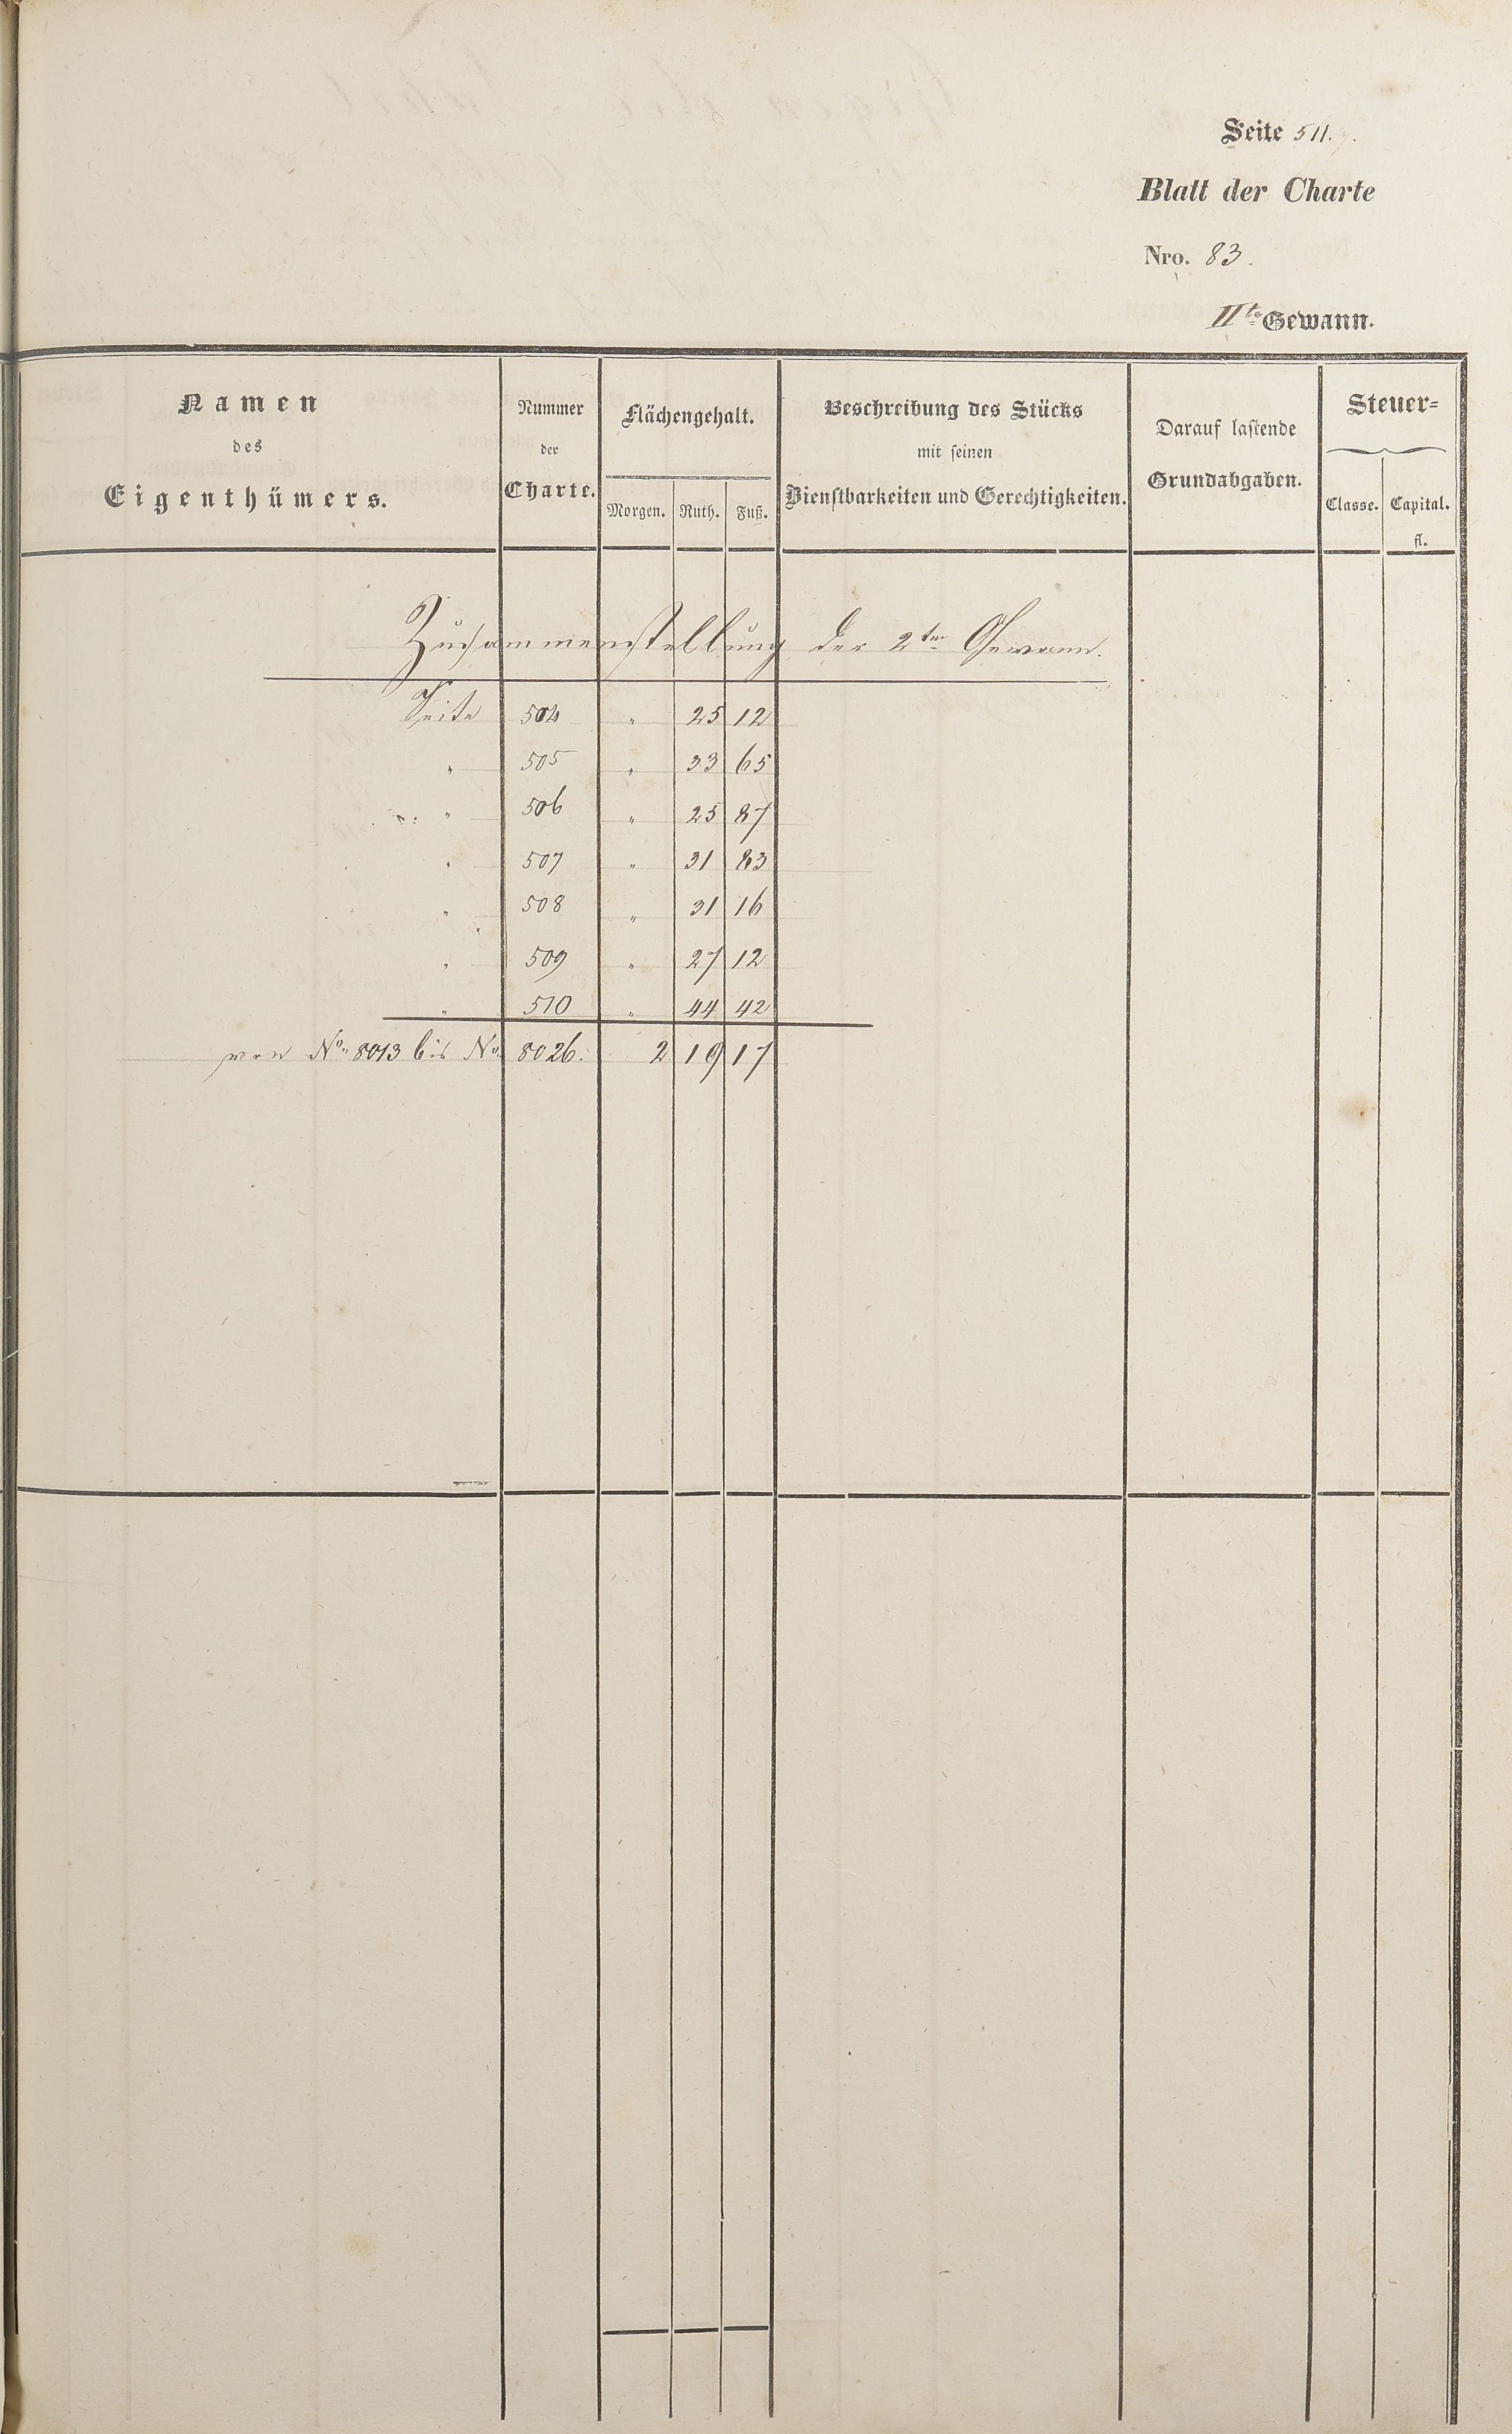 Seite 511.
Blatt der Charte
Nro. 83.
IIte Gewann.
Namen des Eigenthümers.
Nummer der Charte.
Flächengehalt.
Morgen. Ruth. Fuß.
Beschreibung des Stücks mit seinen Dienstbarkeiten und Gerechtigkeiten.
Darauf lastende Grundabgaben.
Steuer=
Classe. Capital. fl.
Zusammenstellung der 2ten Gewann.
Seite 504 " 25 12
" 505 " 33 65
" 506 " 25 87
" 507 " 31 83
" 508 " 31 16
" 509 " 27 12
" 510 " 44 42
von No. 8013 bis No. 8026. 2 19 17